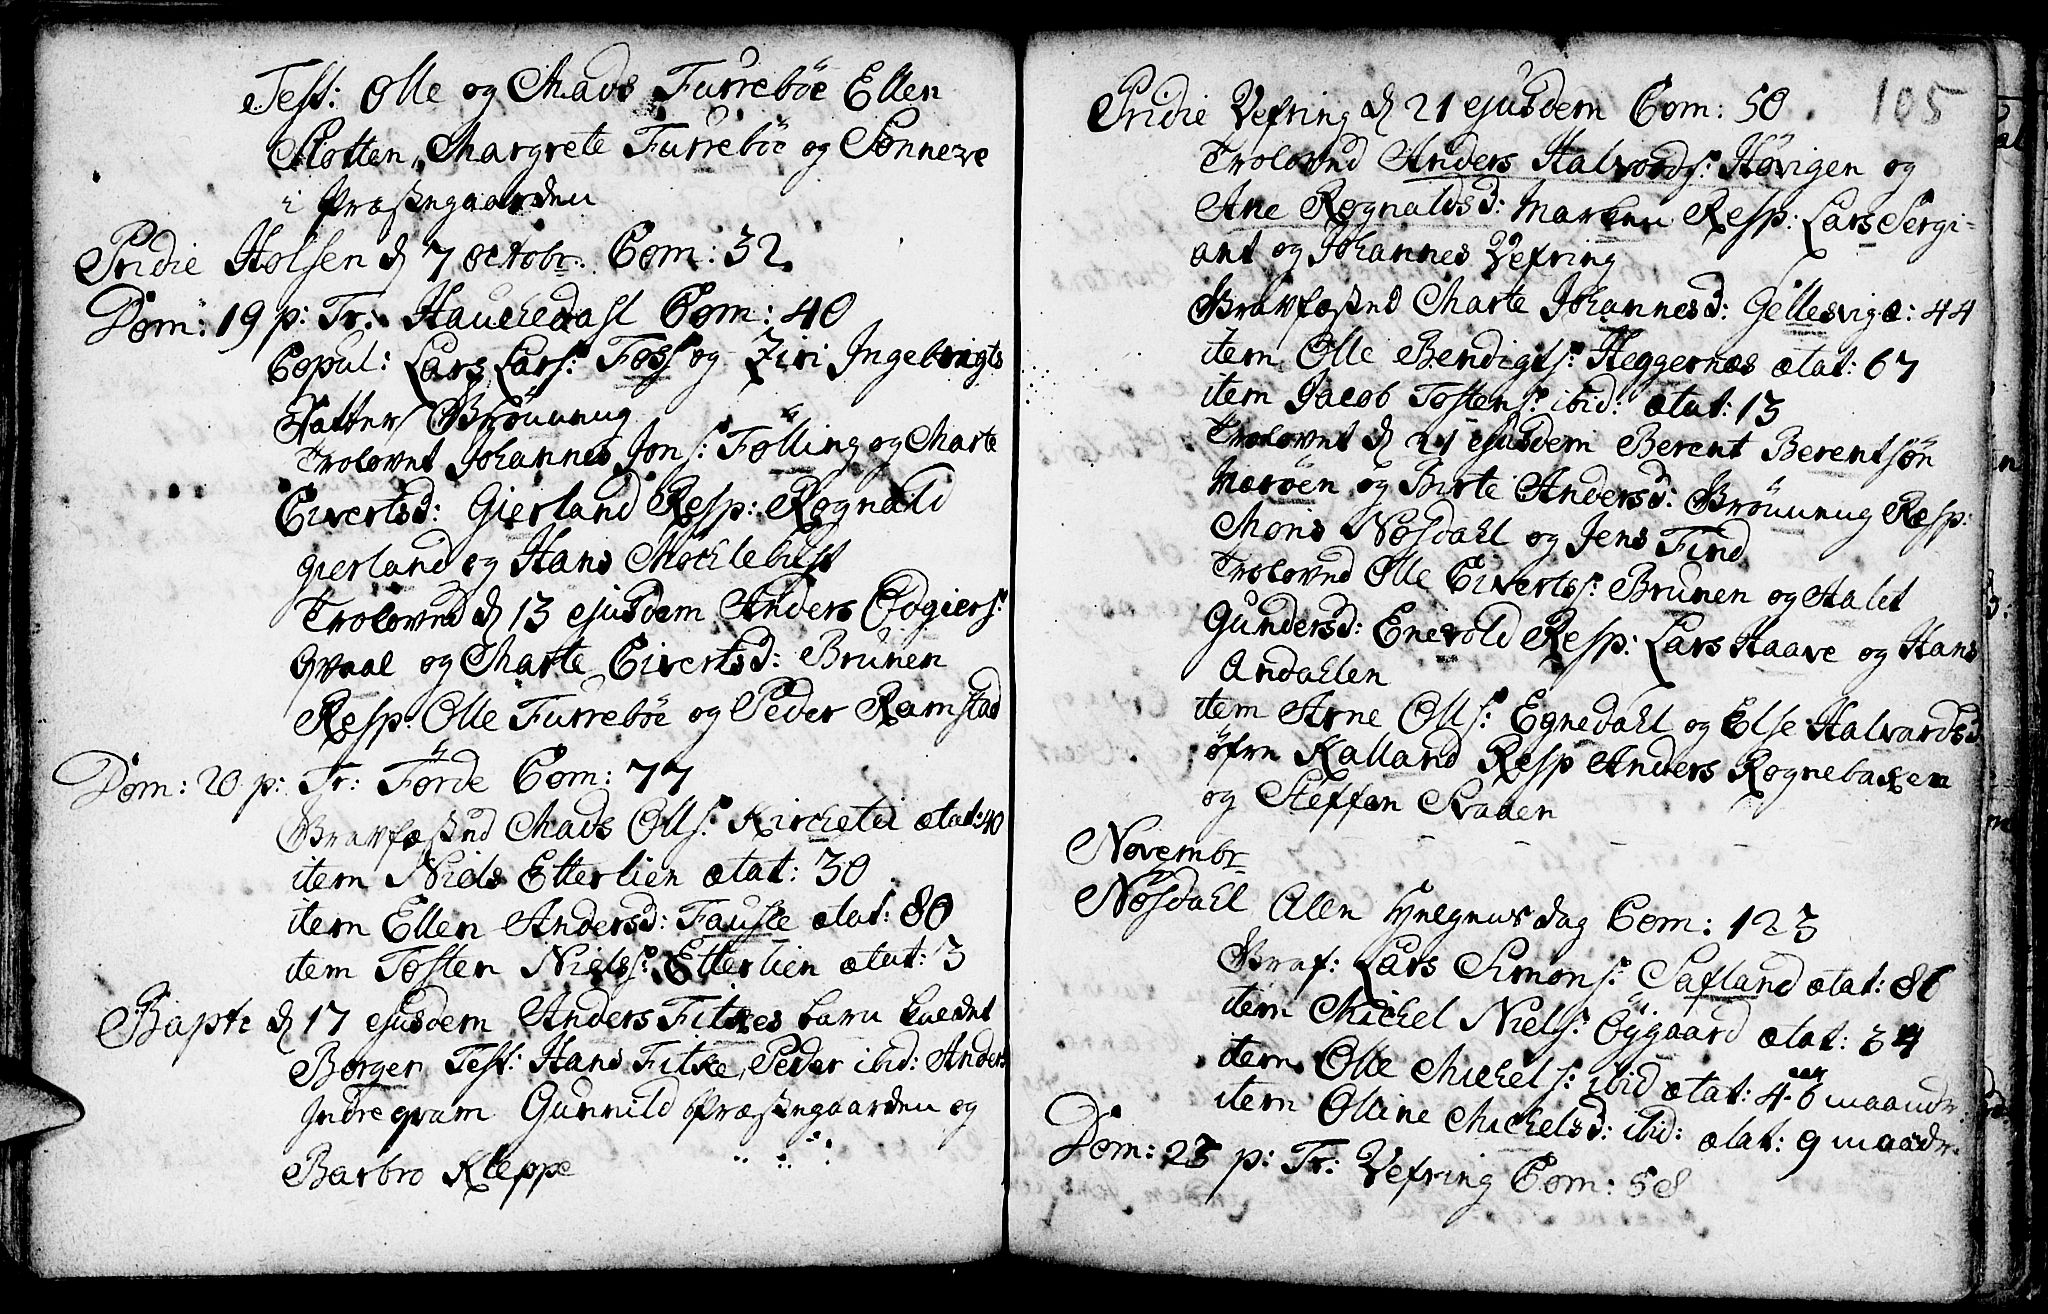 Test: Olle og Mads Furrebøe Ellen
Slotten, Margrete Furrebøe og Sønneve
i Præstegaarden
Pridie Holsen d 7 octobr. Com: 32.
Dom: 19 p: Tr: Hauchedahl Com: 40
Copul: Lars Larss: Foss og Ziri Ingebrigts
Datter Brönning
Trolovet Johannes Jons: Fölling og Marte
Eivertsd: Gierland Resp: Rognald
Gierland og Hans Möcklebust
Trolovned d 13 ejusdem Anders Odgiers:
Qvaal og Marte Eivertsd: Brunen
Resp: Olle Furrebøe og Peder Ramstad
Dom: 20 p: Tr: Förde Com: 77
Gravfæstned Mads Olls: Kircketei ætat: 40
item Niels Etterlien ætat: 30
item Ellen Andersd: Fauske ætat: 80
item Tosten Nielss: Etterlien ætat: 3
Bapt: d 17 ejusdem Anders Fitkes barn kaldet
Borger Test: Hans Fitke, Peder ibid: Anders
Indreqvam Gunnild Præstegaarden og
Barbro Kleppe
105
Pridie Vefring d 21 ejusdem Com: 50
Trolovned Anders Halvords: Hövigen og
Ane Rognaldsd: Marken Resp: Lars Sergi-
ant og Johannes Vefring
Gravfæstned Marte Johannesd: Gellesvig æ: 44
item Olle Bendigts: Heggernæs ætat: 67
item Jacob Tostens: ibid: ætat: 13
Trolovet d 21 ejusdem Berent Berentsön
Naröen og Birte Andersd: Brönning Resp:
Mons Nösdahl og Jens Find
Trolovned Olle Eivertss: Brunen og Malet
Gundersd: Enevold Resp: Lars Haave og Hans
Andahlen
item Arne Olls: Egnedahl og Else Halvardsd
öfre Kalland Resp Anders Rognebacken
og Steffen Svaden
Novembr
Nösdahl Allehelgensdag Com: 123
Graf: Lars Simons: Safland ætat: 86
item Michel Niels: Öygaard ætat: 34
item Olle Michels: ibid ætat: 4 aar 6 maandr:
item Oline Michelsd: ibid: ætat: 9 maadr.
Dom: 23 p: Tr: Vefring Com: 58